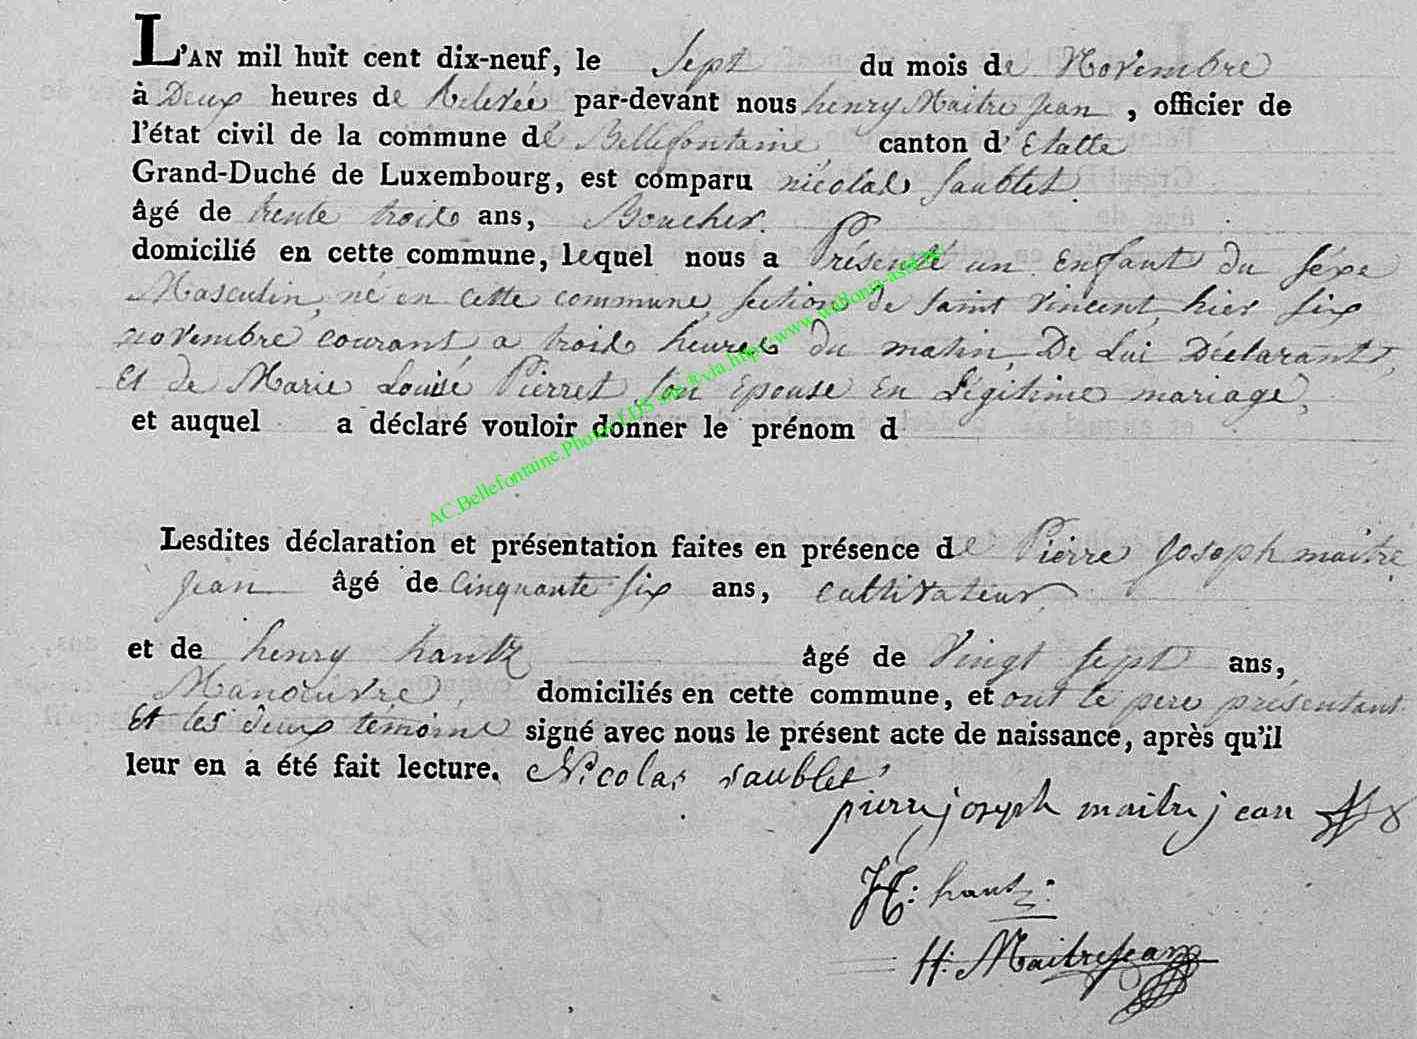 L'AN mil huit cent dix-neuf, le Sept du mois de Novembre
à Deux heures de Relevée par-devant nous henry Maitre Jean , officier de
l'état civil de la commune de Bellefontaine, canton d' Etalle
Grand-Duché de Luxembourg, est comparu nicolas saublet.
âgé de trente trois ans, Boucher.
domicilié en cette commune, lequel nous a Présenté un Enfant du séxe
Masculin, né en cette commune, section de saint vincent, hier six
novembre, courant, a trois heures du matin, De Lui Déclarant,
Et de Marie Louise Pierret son Epouse En Légitime mariage,
et auquel a déclaré vouloir donner le prénom d
AC.Bellefontaine.Photo LDS
Lesdites déclaration et présentation faites en présence de Pierre Joseph maitre
Jean âgé de cinquante six ans, cultivateur
et de henry hantz âgé de Vingt sept ans,
Manoeuvre, domiciliés en cette commune, et ont le pere présentant
Et les deux témoins signé avec nous le présent acte de naissance, après qu'il
leur en a été fait lecture. Nicolas saublet
pierre joseph maitre jean
H: hantz:
H: MaitreJean